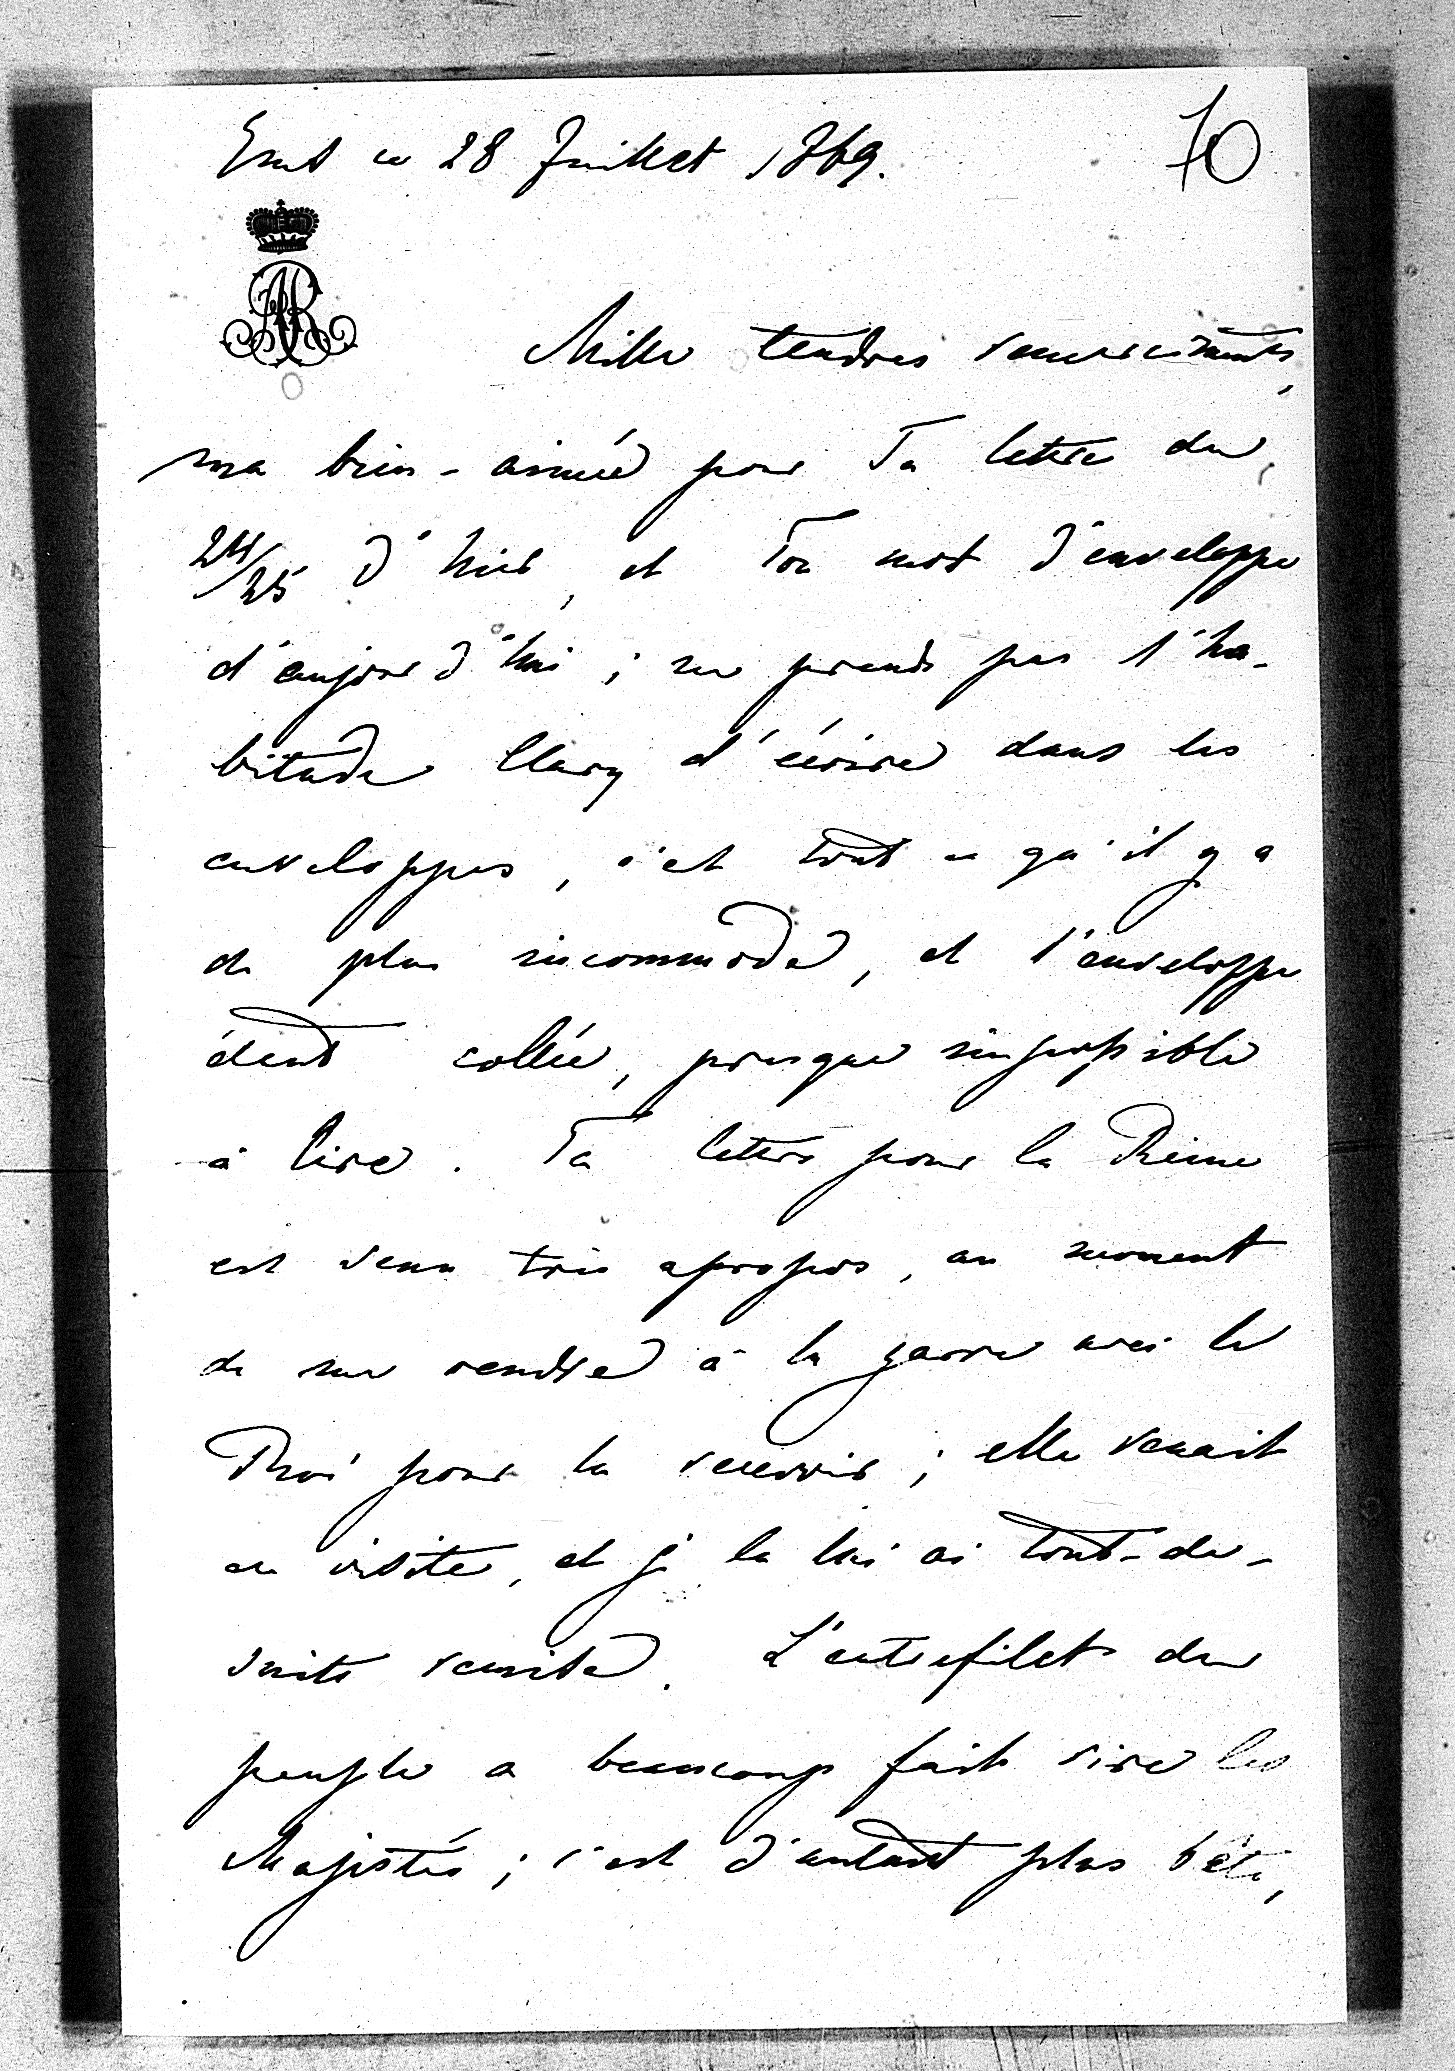 Ems ce 28 Juillet 1869.
70
AR
Mille tendres remerciments,
ma bien-aimée pour Ta lettre du
24/25 d'hier, et Ton mot d'enveloppe
d'aujourd'hui ; ne prends pas l'ha-
bitude Clary d'écrire dans les
enveloppes, c'et tout ce qu'il y a
de plus incommode, et l'enveloppe
étant collée, presque impossible
à lire. Ta lettre pour la Reine
est venu très apropos, au moment
de me rendre à la garre avec le
Roi pour la recevoir ; elle venait
en visite, et je la lui ai tout-de-
suite remise. L'entrefilet du
peuple a beaucoup fait rire les
Majestés ; c'est d'autant plus bête,